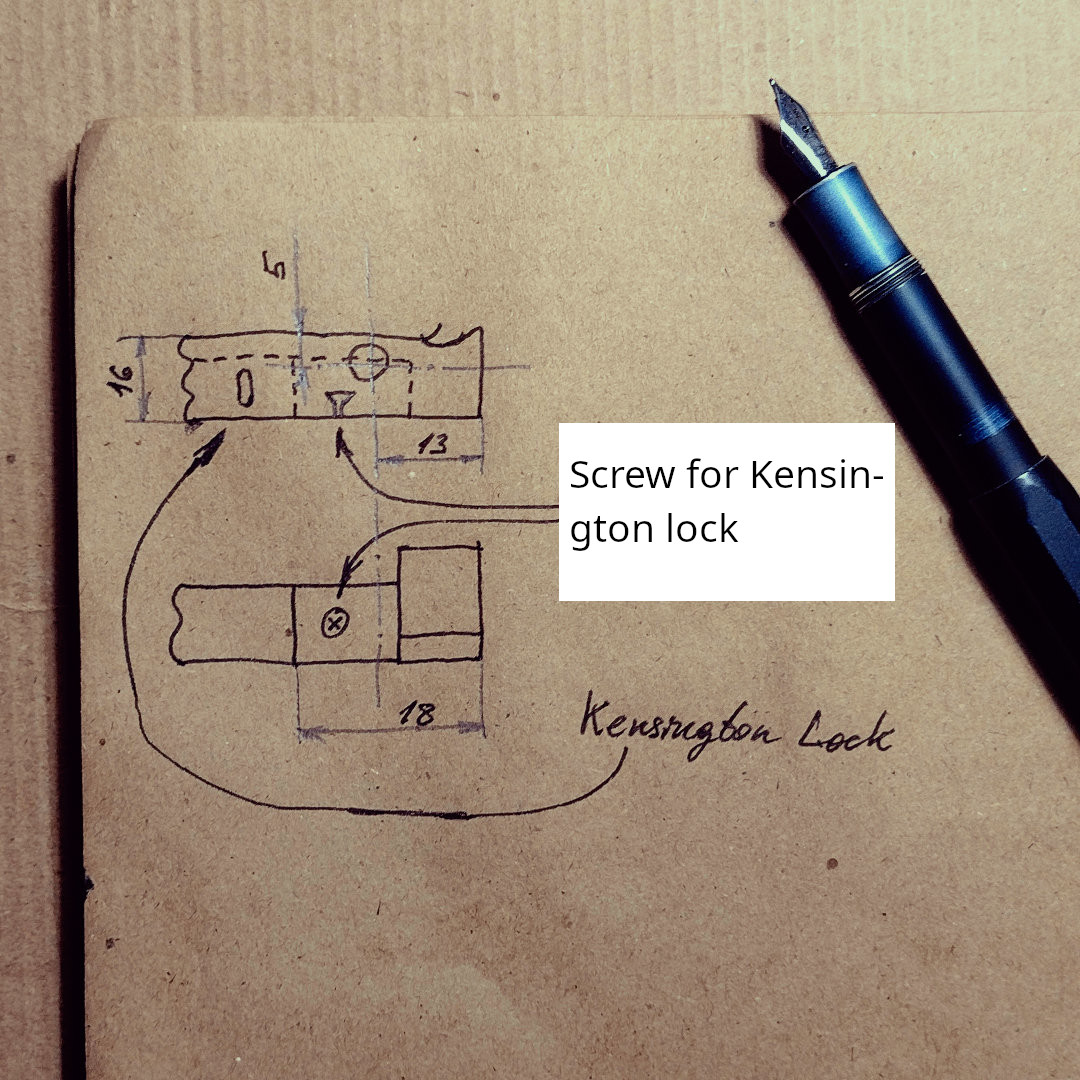 5
16
13
Screw for Kensin-
gton lock
18
Kensington Lock